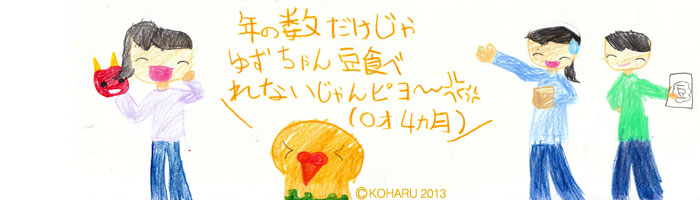 年の数だけじゃ
ゆずちゃん豆食べ
れないじゃんピヨ〜
(0才4ヵ月)
豆
©KOHARU 2013